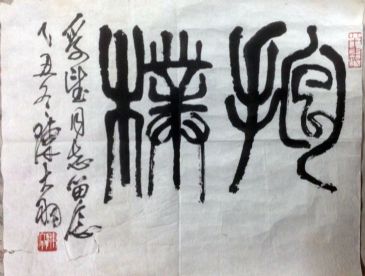 抱樸
同志留念
丁丑冬陳大羽